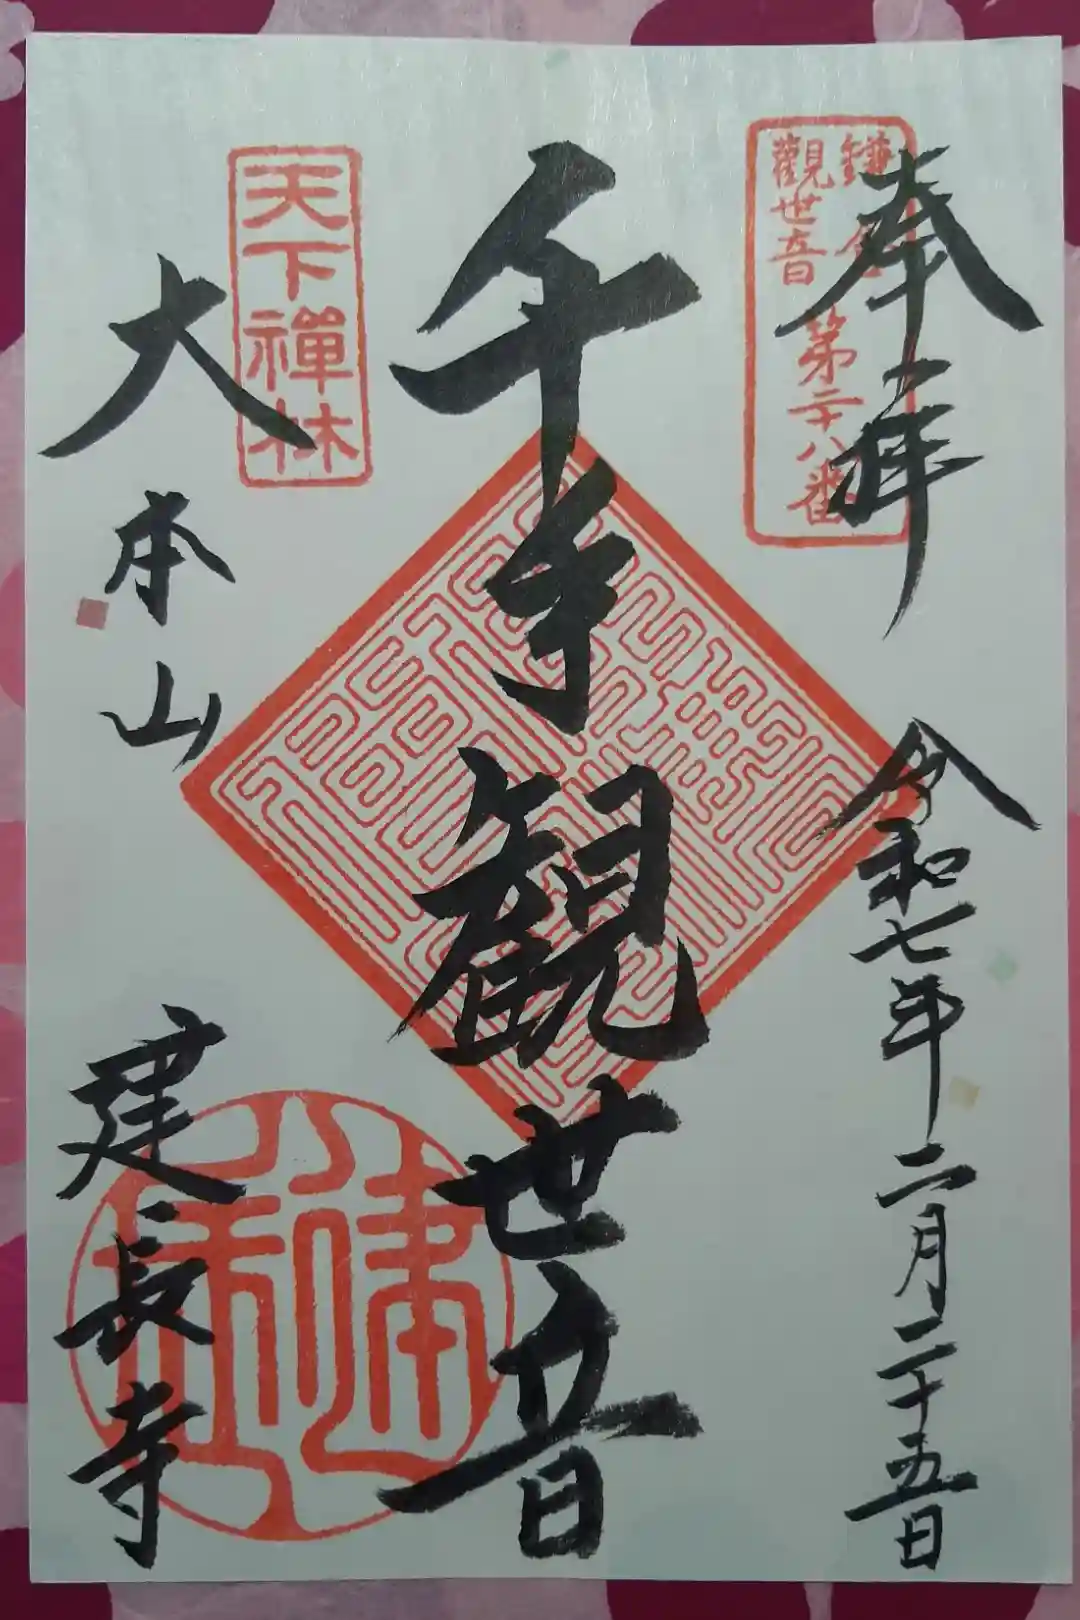 奉拝
鎌倉
觀世音
第二十八番
令和七年二月二十五日
千手観世音
天下禅林
大本山
建長寺